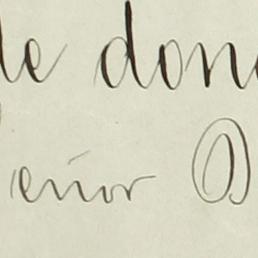 de don
eñor D